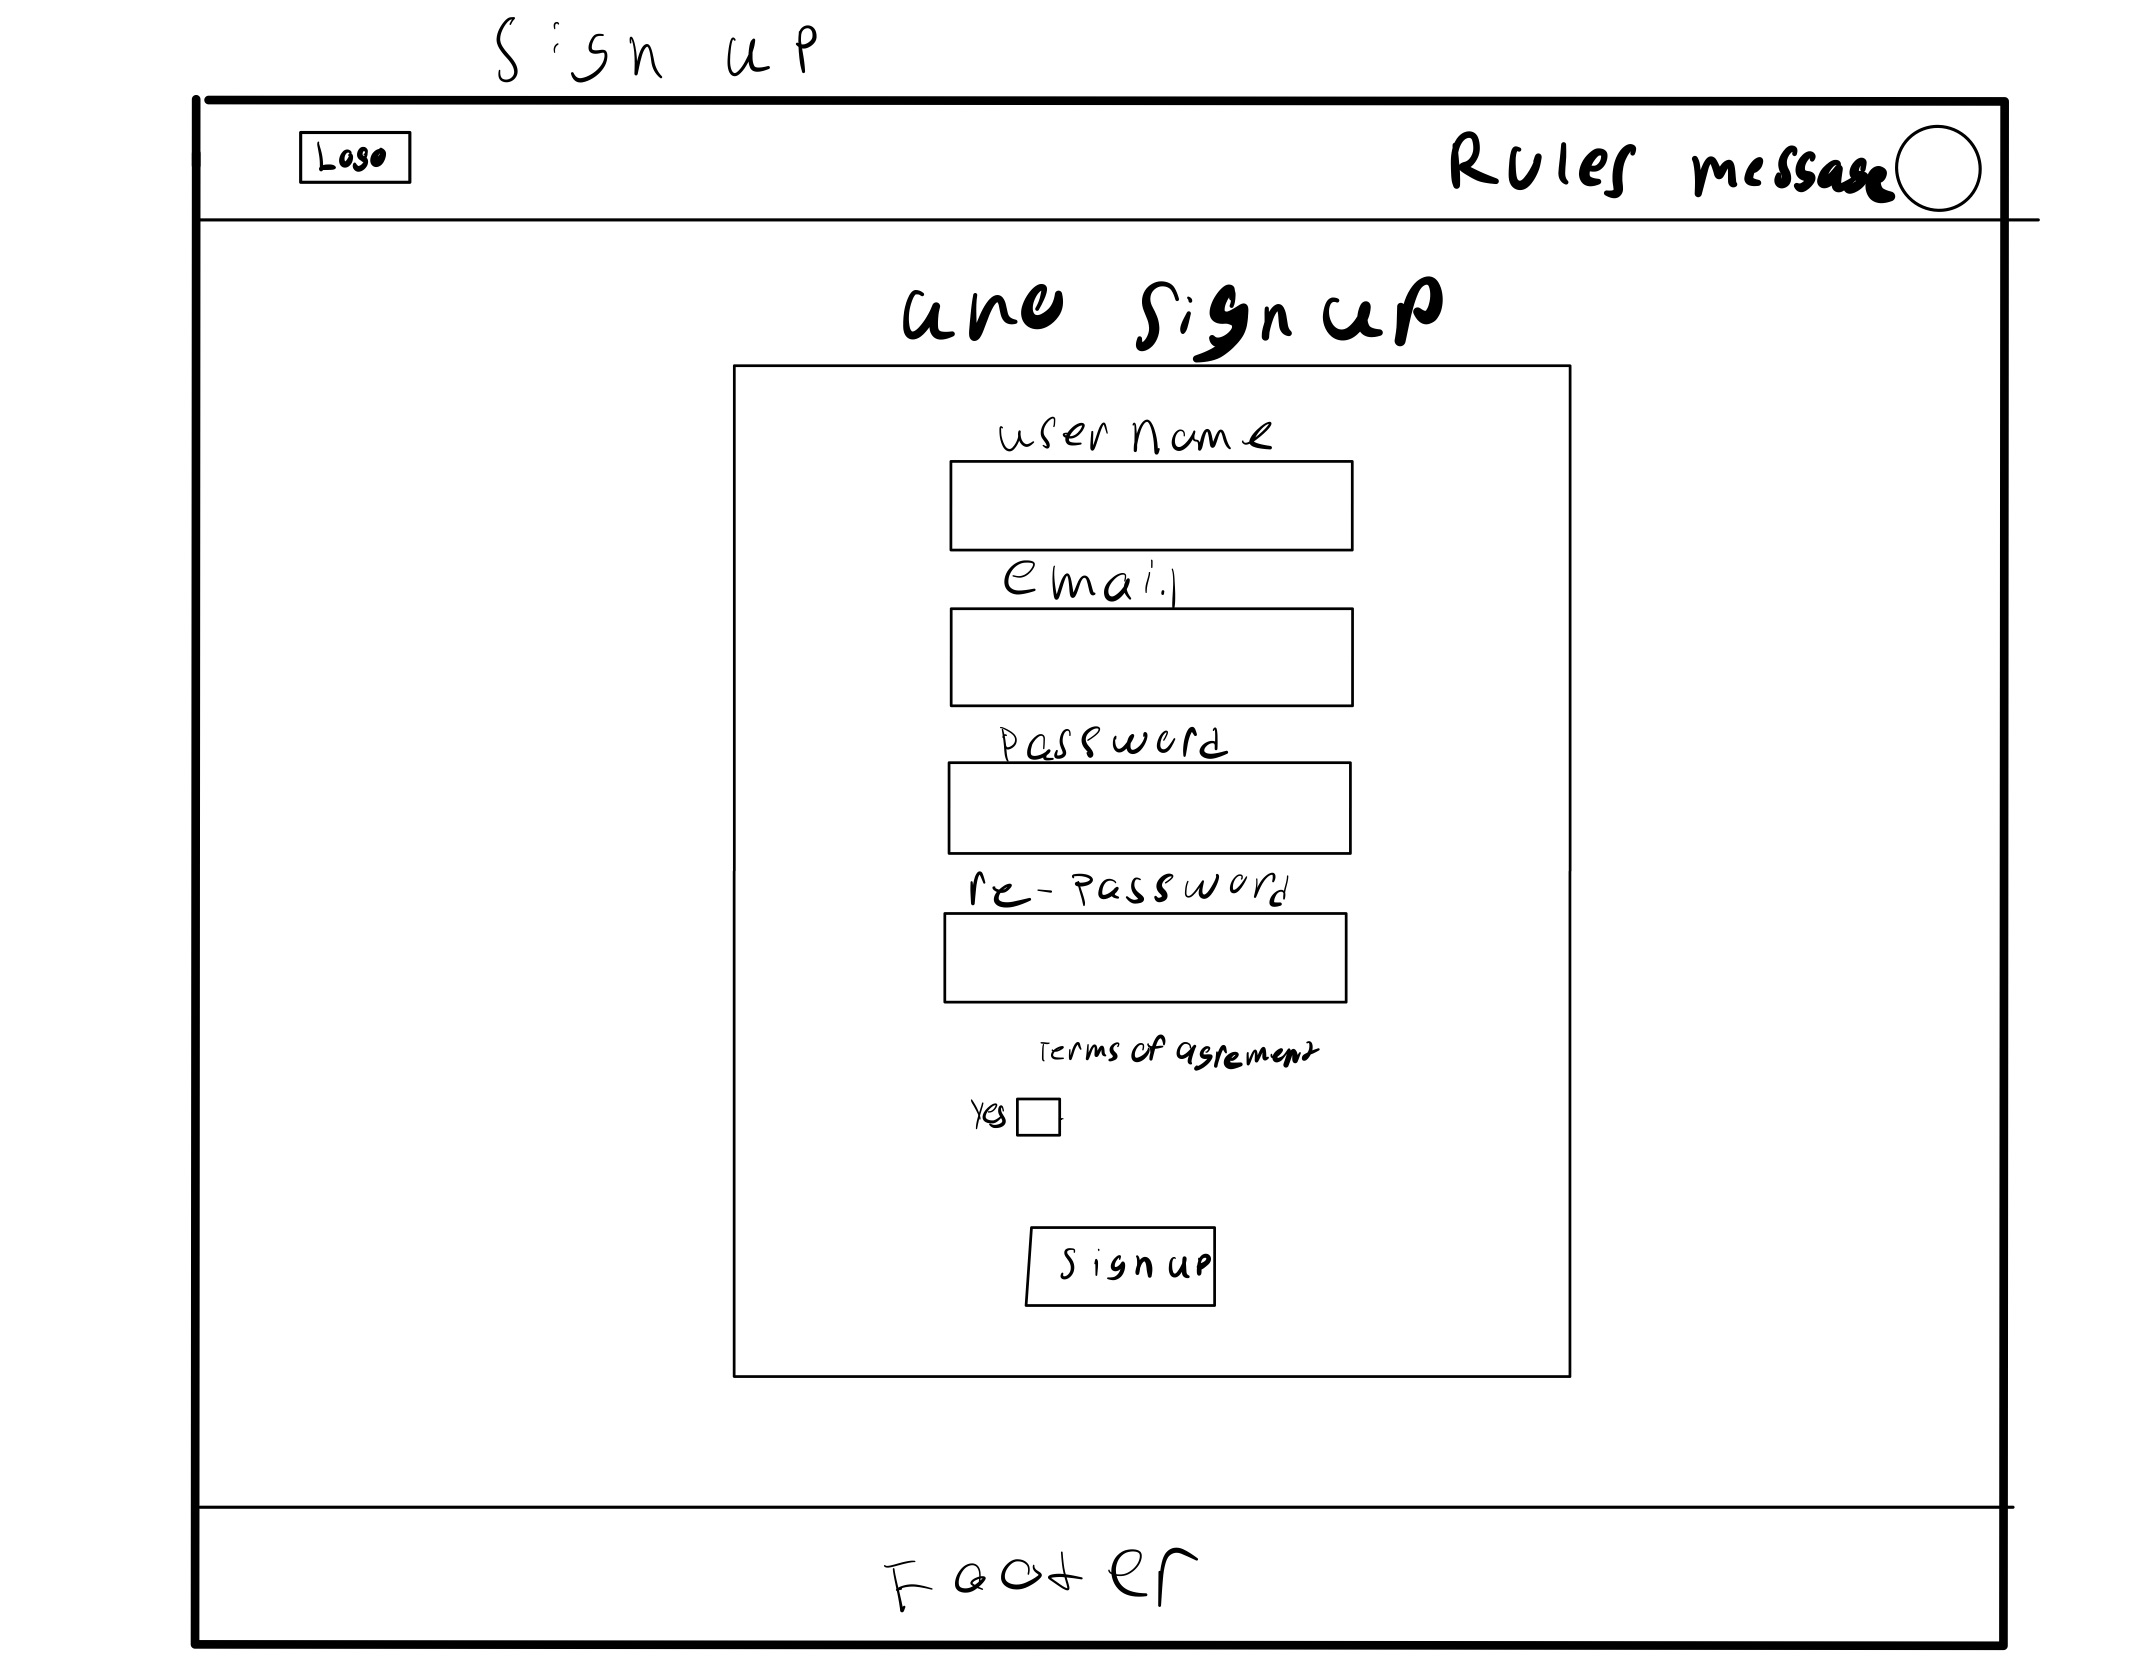 Sign up
Logo
Rules message
uno sign up
username
email
password
re-password
Terms of agrement
Yes
Sign up
Footer